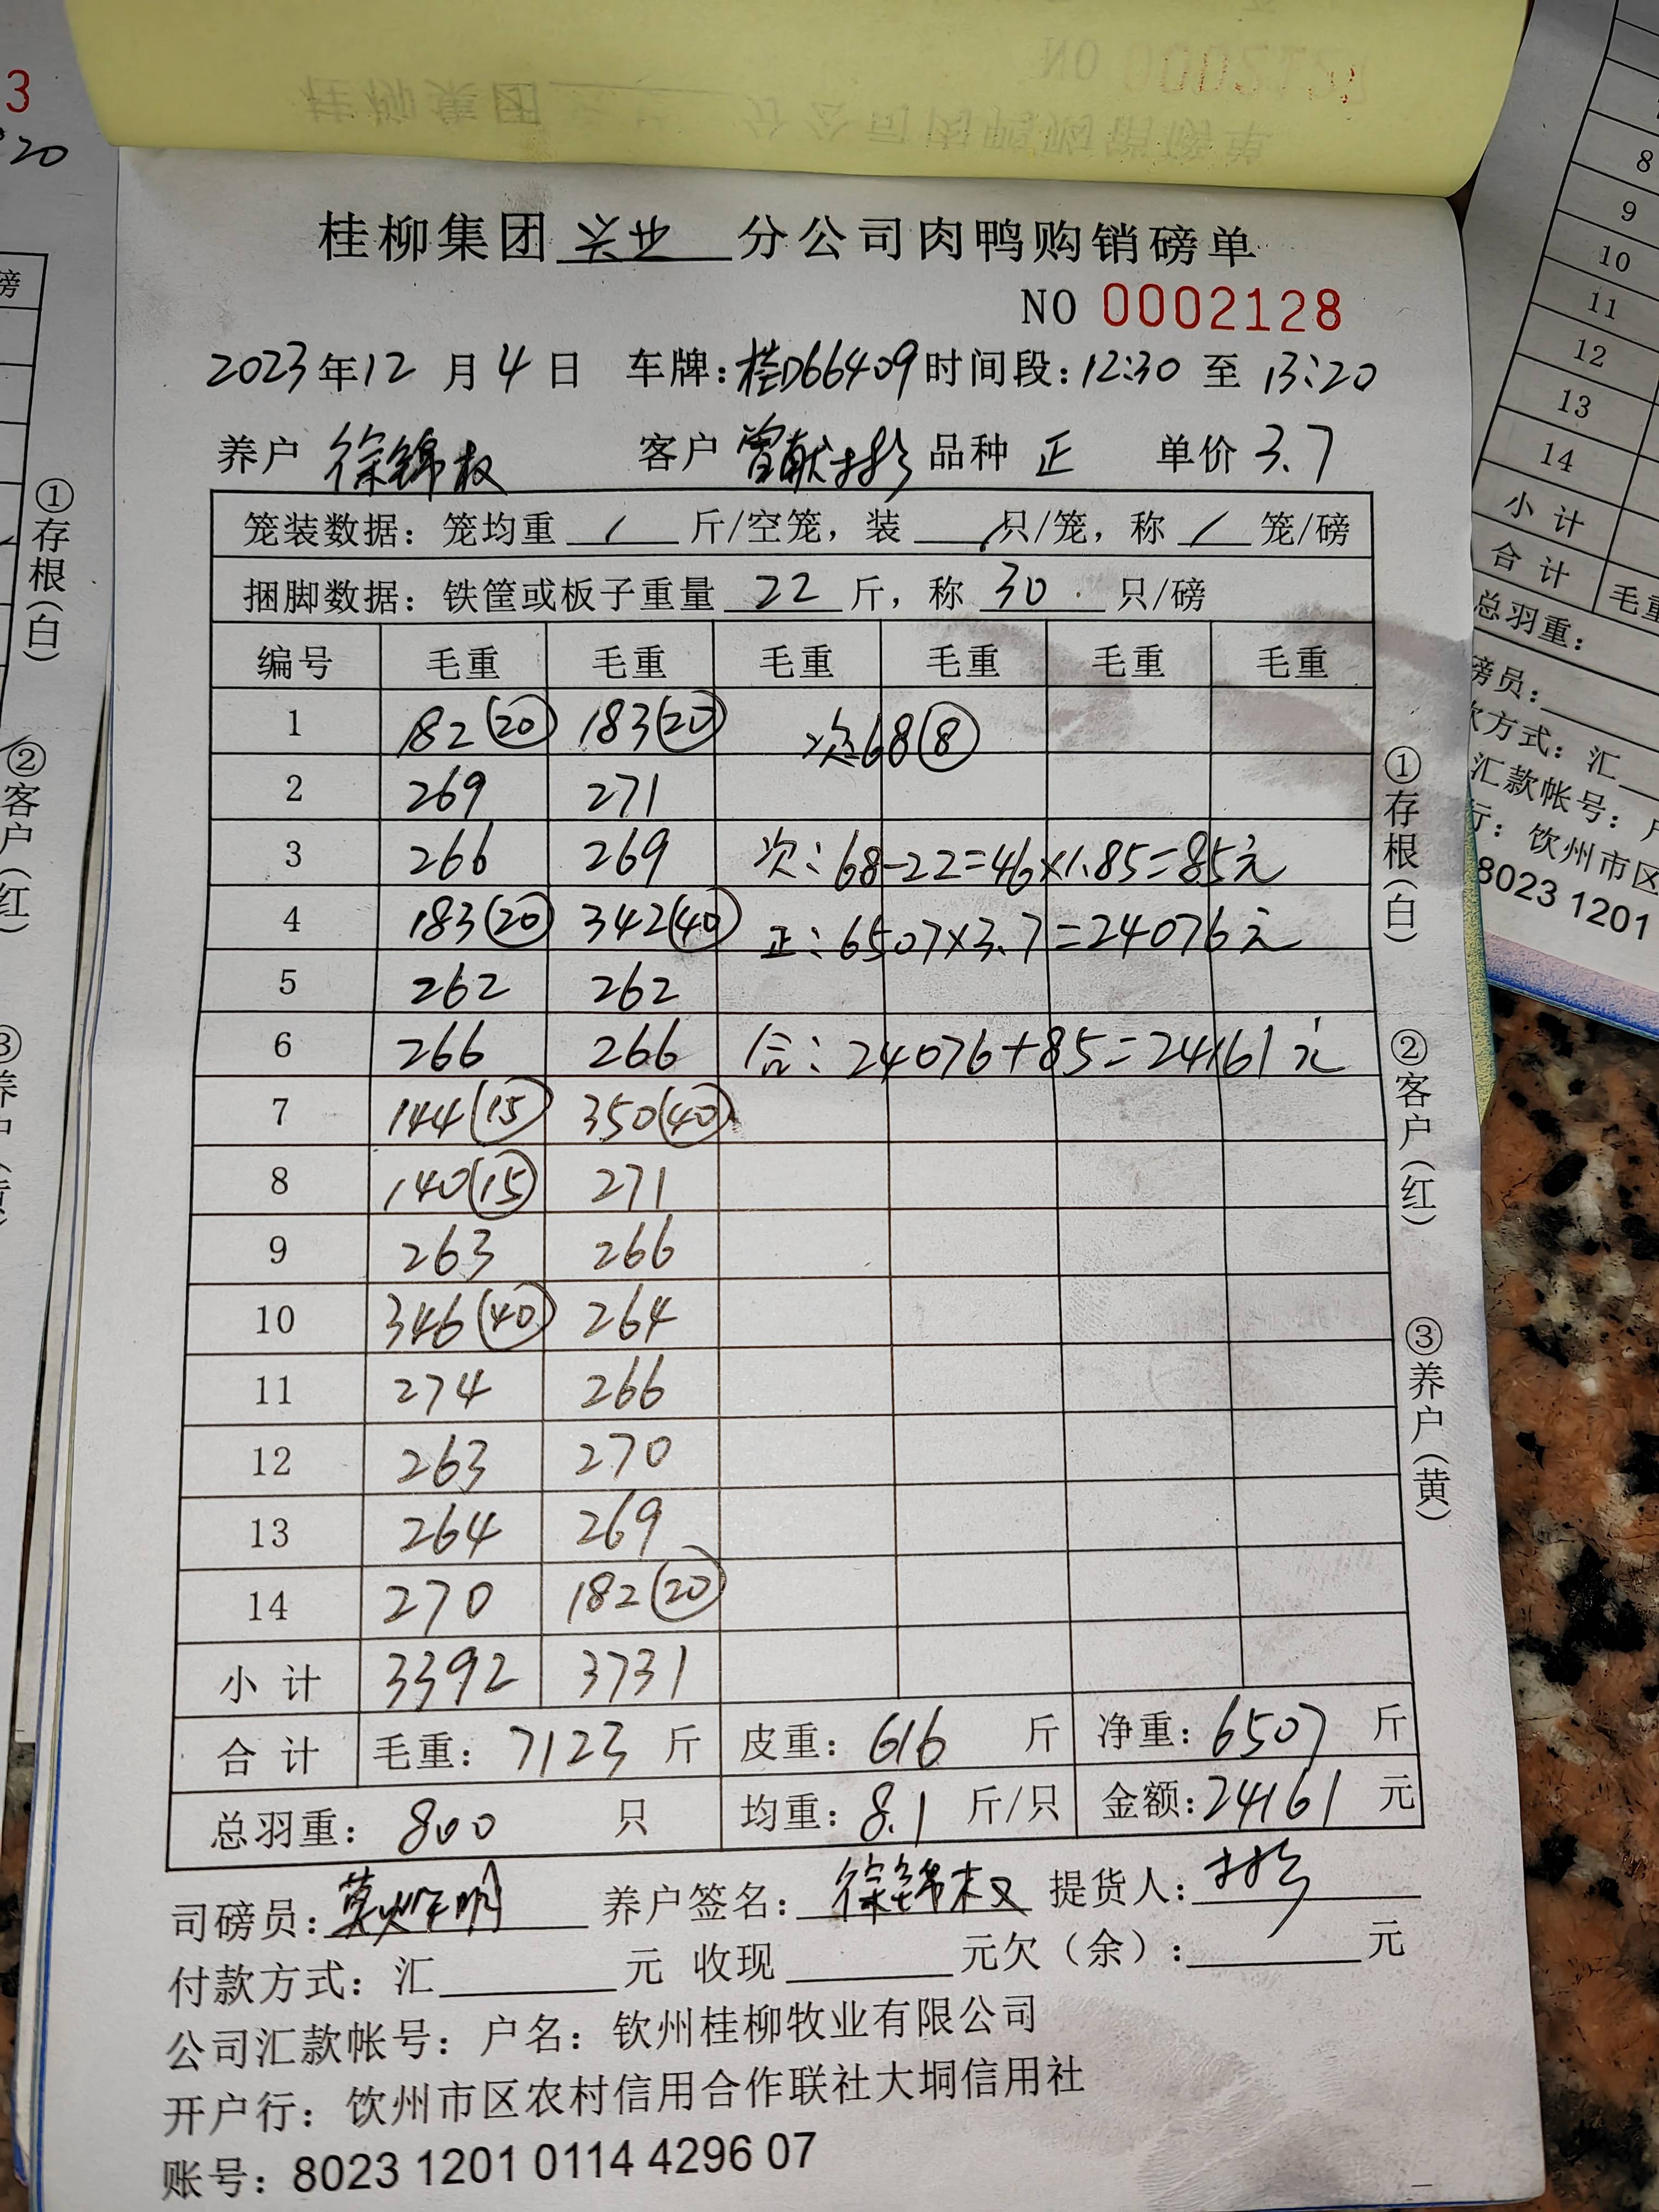 桂柳集团 兴业 分公司肉鸭购销磅单
NO 0002128
2023年12月4日 车牌:桂D66409 时间段:12:30 至 13:20
养户 徐锦权 客户 曾献 品种 正 单价 3.7
笼装数据: 笼均重 / 斤/空笼, 装 / 只/笼, 称 / 笼/磅
捆脚数据: 铁筐或板子重量 22 斤, 称 30 只/磅
编号 毛重 毛重 毛重 毛重 毛重 毛重
1 182(20) 183(20) 次68(8)
2 269 271
3 266 269 次:68-22=46×1.85=85元
4 183(20) 342(40) 正:6507×3.7=24076元
5 262 262
6 266 266 合:24076+85=24161元
7 144(15) 350(40)
8 140(15) 271
9 263 266
10 346(40) 264
11 274 266
12 263 270
13 264 269
14 270 182(20)
小计 3392 3731
合计 毛重: 7123 斤 皮重: 616 斤 净重: 6507 斤
总羽重: 800 只 均重: 8.1 斤/只 金额: 24161 元
司磅员: 莫 明 养户签名: 徐锦权 提货人:
付款方式: 汇 元 收现 元欠(余): 元
公司汇款帐号: 户名: 钦州桂柳牧业有限公司
开户行: 钦州市区农村信用合作联社大垌信用社
账号: 8023 1201 0114 4296 07
①存根(白)
②客户(红)
③养户(黄)
3
20
磅
①存根(白)
②客户(红)
8
9
10
11
12
13
14
小计
合计 毛重
总羽重:
磅员:
方式: 汇
汇款帐号:
行: 钦州市区
8023 1201